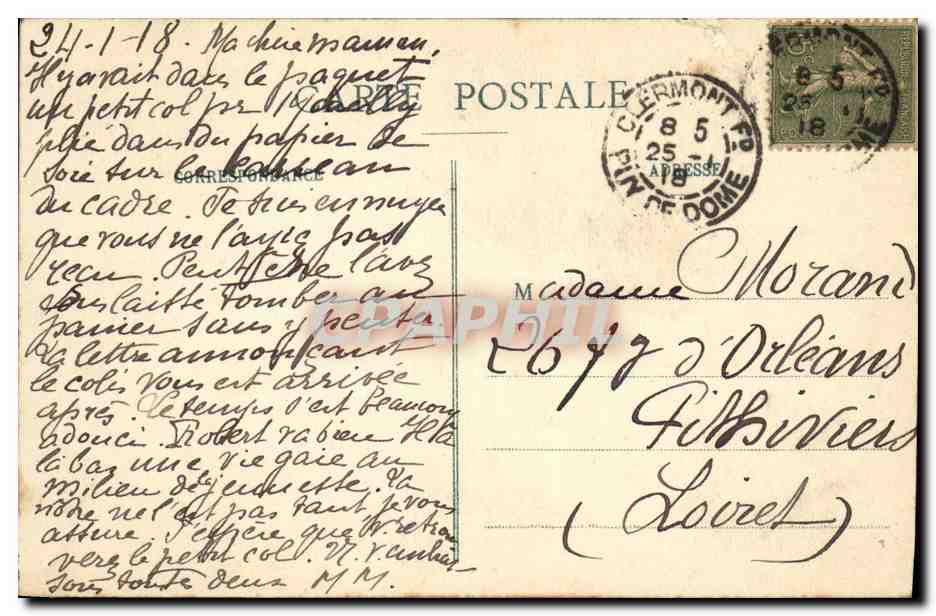 24-1-18. Ma chère maman,
Il y avait dans le paquet
un petit col pr
plié dans du papier de
soie sur le
du cadre. Je suis ennuyée
que vous ne l'ayiez pas
reçu. Peut être l'avez
vous laissé tomber au
panier sans y penser.
La lettre annonçant
le colis vous est arrivée
après. Le temps s'est beaucoup
adouci. Robert va bien Il a
là bas une vie gaie au
milieu de jeunesse. La
nôtre ne l'est pas tant je vous
assure. J'espère que v. retrou
verez le petit col. N. v. embras-
sons toutes deux M M.
CARTE POSTALE
CORRESPONDANCE
ADRESSE
CLERMONT FD
8 5
25 -1
18
PUY-DE-DOME
8 5
25 -1
18
REPUBLIQUE FRANÇAISE
CPAPHIL
Madame Morand
26 d'Orléans
Pithiviers
(Loiret)